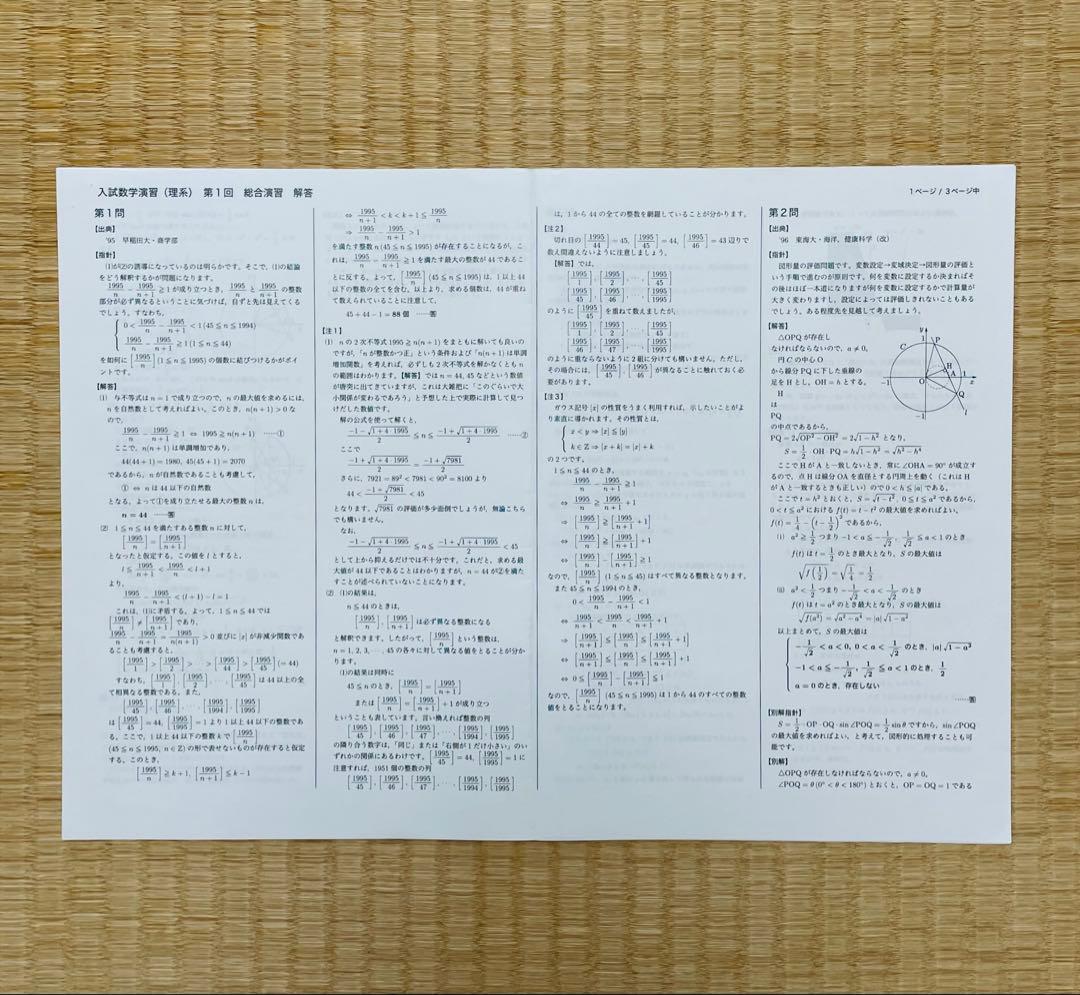 入試数学演習（理系） 第1回 総合演習 解答
1ページ / 3ページ中
第1問
【出典】
'95 早稲田大・商学部
【指針】
(1)が(2)の誘導になっているのは明らかです。そこで，(1)の結論
をどう解釈するかが問題になります。
1995/n − 1995/(n+1) ≧ 1 が成り立つとき，1995/n と 1995/(n+1) の整数
部分が必ず異なるということに気づけば，自ずと先は見えてくる
でしょう。すなわち，
0 < 1995/n − 1995/(n+1) < 1 (45 ≦ n ≦ 1994)
1995/n − 1995/(n+1) ≧ 1 (1 ≦ n ≦ 44)
を如何に [1995/n] (1 ≦ n ≦ 1995) の個数に結びつけるかがポイ
ントです。
【解答】
(1) 与不等式は n = 1 で成り立つので，n の最大値を求めるには，
n を自然数として考えればよい。このとき，n(n+1) > 0 な
ので，
1995/n − 1995/(n+1) ≧ 1 ⇔ 1995 ≧ n(n+1) ……①
ここで，n(n+1) は単調増加であり，
44(44+1) = 1980, 45(45+1) = 2070
であるから，n が自然数であることも考慮して，
① ⇔ n は 44 以下の自然数
となる。よって①を成り立たせる最大の整数 n は，
n = 44 ……答
(2) 1 ≦ n ≦ 44 を満たすある整数 n に対して，
[1995/n] = [1995/(n+1)]
となったと仮定する。この値を l とすると，
l ≦ 1995/(n+1) < 1995/n < l+1
より，
1995/n − 1995/(n+1) < (l+1) − l = 1
これは，(1)に矛盾する。よって，1 ≦ n ≦ 44 では
[1995/n] ≠ [1995/(n+1)] であり，
1995/n − 1995/(n+1) = 1995/n(n+1) > 0 並びに [x] が非減少関数であ
ることも考慮すると，
[1995/1] > [1995/2] > ･･･ > [1995/44] > [1995/45] (= 44)
すなわち，[1995/1], [1995/2], ･･･, [1995/45] は 44 以上の全
て相異なる整数である。また，
[1995/45], [1995/46], ･･･, [1995/1994], [1995/1995]
は [1995/45] = 44, [1995/1995] = 1 より 1 以上 44 以下の整数であ
る。ここで，1 以上 44 以下の整数 k で [1995/n]
(45 ≦ n ≦ 1995, n ∈ Z) の形で表せないものが存在すると仮定
する。このとき，
[1995/n] ≧ k+1, [1995/(n+1)] ≦ k−1
⇔ 1995/(n+1) < k < k+1 ≦ 1995/n
⇒ 1995/n − 1995/(n+1) > 1
を満たす整数 n (45 ≦ n ≦ 1995) が存在することになるが，こ
れは，1995/n − 1995/(n+1) ≧ 1 を満たす最大の整数が 44 であるこ
とに反する。よって，[1995/n] (45 ≦ n ≦ 1995) は，1 以上 44
以下の整数の全てを含む。以上より，求める個数は，44 が重ね
て数えられていることに注意して，
45 + 44 − 1 = 88 個 ……答
【注1】
(1) n の 2 次不等式 1995 ≧ n(n+1) をまともに解いても良いの
ですが，「n が整数かつ正」という条件および「n(n+1) は単調
増加関数」を考えれば，必ずしも 2 次不等式を解かなくとも n
の範囲はわかります。【解答】では n = 44, 45 などという数値
が唐突に出てきていますが，これは大雑把に「このぐらいで大
小関係が変わるであろう」と予想した上で実際に計算して見つ
けだした数値です。
解の公式を使って解くと，
(−1 − √(1+4·1995))/2 ≦ n ≦ (−1 + √(1+4·1995))/2 ……②
ここで
(−1 + √(1+4·1995))/2 = (−1 + √7981)/2
さらに，7921 = 89² < 7981 < 90² = 8100 より
44 < (−1 + √7981)/2 < 45
となります。√7981 の評価が多少面倒でしょうが，無論こちら
でも構いません。
なお，
(−1 − √(1+4·1995))/2 ≦ n ≦ (−1 + √(1+4·1995))/2 < 45
として上から抑えるだけでは不十分です。これだと，求める最
大値が 44 以下であることはわかりますが，n = 44 が②を満た
すことが述べられていないことになります。
(2) (1)の結果は，
n ≦ 44 のときは，
[1995/n], [1995/(n+1)] は必ず異なる整数になる
と解釈できます。したがって，[1995/n] という整数は，
n = 1, 2, 3, ･･･, 45 の各々に対して異なる値をとることが分か
ります。
(1)の結果は同時に
45 ≦ n のとき，[1995/n] = [1995/(n+1)]
または [1995/n] = [1995/(n+1)] + 1 が成り立つ
ということも表しています。言い換えれば整数の列
[1995/45], [1995/46], [1995/47], ･･･, [1995/1994], [1995/1995]
の隣り合う数字は，「同じ」または「右側が 1 だけ小さい」のい
ずれかの関係にあるわけです。[1995/45] = 44, [1995/1995] = 1 に
注意すれば，1951 個の整数の列
[1995/45], [1995/46], [1995/47], ･･･, [1995/1994], [1995/1995]
は，1 から 44 の全ての整数を網羅していることが分かります。
【注2】
切れ目の [1995/44] = 45, [1995/45] = 44, [1995/46] = 43 辺りで
数え間違えないように注意しましょう。
【解答】では，
[1995/1], [1995/2], ･･･, [1995/45]
[1995/45], [1995/46], ･･･, [1995/1995]
のように [1995/45] を重ねて数えましたが，
[1995/1], [1995/2], ･･･, [1995/44]
[1995/45], [1995/46], ･･･, [1995/1995]
のように重ならないように 2 組に分けても構いません。ただし，
その場合には，[1995/45], [1995/46] が異なることに触れておく必
要があります。
【注3】
ガウス記号 [x] の性質をうまく利用すれば，示したいことがよ
り素直に導かれます。その性質とは，
x < y ⇒ [x] ≦ [y]
k ∈ Z ⇒ [x+k] = [x] + k
の 2 つです。
1 ≦ n ≦ 44 のとき，
1995/n − 1995/(n+1) ≧ 1
⇔ 1995/n ≧ 1995/(n+1) + 1
⇒ [1995/n] ≧ [1995/(n+1) + 1]
⇔ [1995/n] ≧ [1995/(n+1)] + 1
⇔ [1995/n] − [1995/(n+1)] ≧ 1
なので，[1995/n] (1 ≦ n ≦ 45) はすべて異なる整数となります。
また 45 ≦ n ≦ 1994 のとき，
0 < 1995/n − 1995/(n+1) < 1
⇔ 1995/(n+1) < 1995/n < 1995/(n+1) + 1
⇒ [1995/(n+1)] ≦ [1995/n] ≦ [1995/(n+1) + 1]
⇔ [1995/(n+1)] ≦ [1995/n] ≦ [1995/(n+1)] + 1
⇔ 0 ≦ [1995/n] − [1995/(n+1)] ≦ 1
なので，[1995/n] (45 ≦ n ≦ 1995) は 1 から 44 のすべての整数
値をとることになります。
第2問
【出典】
'96 東海大・海洋，健康科学（改）
【指針】
図形量の評価問題です。変数設定→変域決定→図形量の評価と
いう手順で進むのが原則です。何を変数に設定するか決まればそ
の後はほぼ一本道になりますが何を変数に設定するかで計算量が
大きく変わりますし，設定によっては評価しきれないこともある
でしょう。ある程度先を見越して考えましょう。
【解答】
△OPQ が存在し
なければならないので，a ≠ 0。
円 C の中心 O
から線分 PQ に下した垂線の
足を H とし，OH = h とする。
H
は
PQ
の中点であるから，
y
C
P
H
A
O
Q
−1
1
x
−1
l
PQ = 2√(OP² − OH²) = 2√(1 − h²) となり，
S = 1/2 · OH · PQ = h√(1 − h²) = √(h² − h⁴)
ここで H が A と一致しないとき，常に ∠OHA = 90° が成立す
るので，点 H は線分 OA を直径とする円周上を動く（これは H
が A と一致するときも正しい）ので 0 < h ≦ |a| である。
ここで t = h² とおくと，S = √(t − t²)，0 ≦ t ≦ a² であるから，
0 < t ≦ a² における f(t) = t − t² の最大値を求めればよい。
f(t) = 1/4 − (t − 1/2)² であるから，
(i) a² ≧ 1/2 つまり −1 < a ≦ −1/√2, 1/√2 ≦ a < 1 のとき
f(t) は t = 1/2 のとき最大となり，S の最大値は
√f(1/2) = √(1/4) = 1/2
(ii) a² < 1/2 つまり −1/√2 < a < 1/√2 のとき
f(t) は t = a² のとき最大となり，S の最大値は
√f(a²) = √(a² − a⁴) = |a|√(1 − a²)
以上まとめて，S の最大値は
−1/√2 < a < 0, 0 < a < 1/√2 のとき，|a|√(1 − a²)
−1 < a ≦ −1/√2, 1/√2 ≦ a < 1 のとき，1/2
a = 0 のとき，存在しない
……答
【別解指針】
S = 1/2 · OP · OQ · sin∠POQ = 1/2 sin θ ですから，sin∠POQ
の最大値を求めればよい，と考えて，図形的に処理することも可
能です。
【別解】
△OPQ が存在しなければならないので，a ≠ 0。
∠POQ = θ (0° < θ < 180°) とおくと，OP = OQ = 1 である